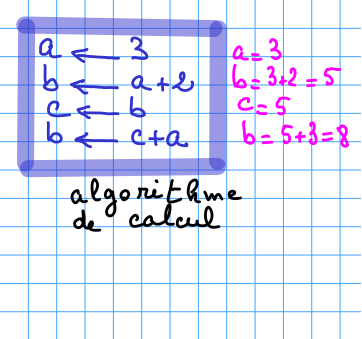 a ← 3
b ← a+2
c ← b
b ← c+a
a = 3
b = 3+2 = 5
c = 5
b = 5+3 = 8
algorithme
de calcul